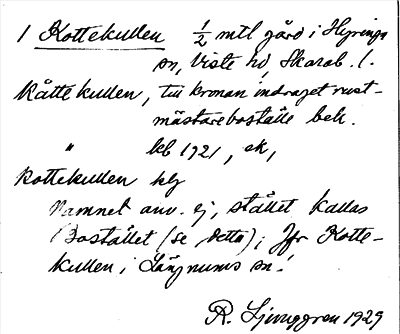 1 Kottekullen 1/2 mtl gård i Hyringa
sn, Viste hd, Skarab. l.
Kåttekullen, till kronan indraget rust-
mästareboställe beh.
" kb 1921, ek,
Kottekullen klj
Namnet anv. ej, stället kallas
Bostället (se detta); Jfr Kotte-
kullen i Längnums sn!
R. Ljunggren 1929